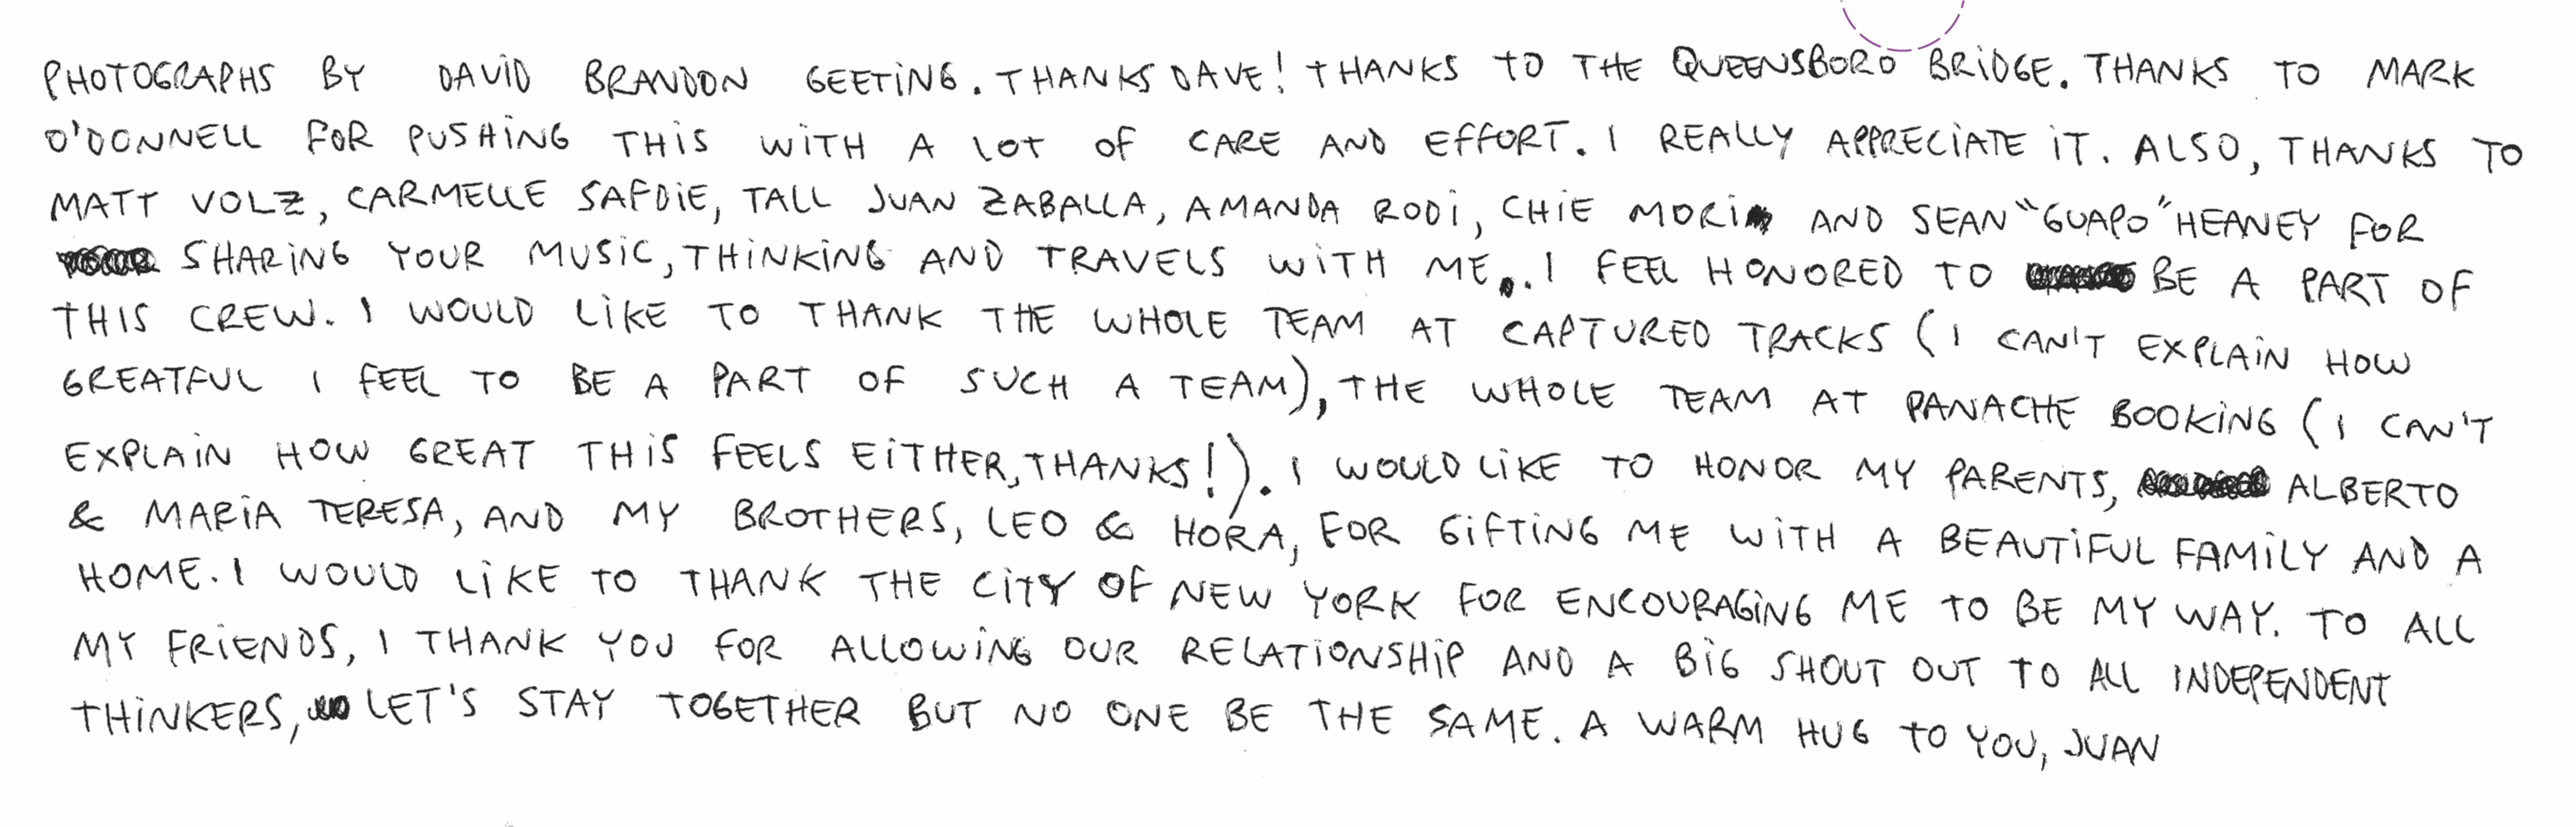 PHOTOGRAPHS BY DAVID BRANDON GEETING. THANKS DAVE! THANKS TO THE QUEENSBORO BRIDGE. THANKS TO MARK
O'DONNELL FOR PUSHING THIS WITH A LOT OF CARE AND EFFORT. I REALLY APPRECIATE IT. ALSO, THANKS TO
MATT VOLZ, CARMELLE SAFDIE, TALL JUAN ZABALLA, AMANDA RODI, CHIE MORI AND SEAN "GUAPO" HEANEY FOR
SHARING YOUR MUSIC, THINKING AND TRAVELS WITH ME. I FEEL HONORED TO BE A PART OF
THIS CREW. I WOULD LIKE TO THANK THE WHOLE TEAM AT CAPTURED TRACKS (I CAN'T EXPLAIN HOW
GREATFUL I FEEL TO BE A PART OF SUCH A TEAM), THE WHOLE TEAM AT PANACHE BOOKING (I CAN'T
EXPLAIN HOW GREAT THIS FEELS EITHER, THANKS!). I WOULD LIKE TO HONOR MY PARENTS, ALBERTO
& MARIA TERESA, AND MY BROTHERS, LEO & HORA, FOR GIFTING ME WITH A BEAUTIFUL FAMILY AND A
HOME. I WOULD LIKE TO THANK THE CITY OF NEW YORK FOR ENCOURAGING ME TO BE MY WAY. TO ALL
MY FRIENDS, I THANK YOU FOR ALLOWING OUR RELATIONSHIP AND A BIG SHOUT OUT TO ALL INDEPENDENT
THINKERS, LET'S STAY TOGETHER BUT NO ONE BE THE SAME. A WARM HUG TO YOU, JUAN